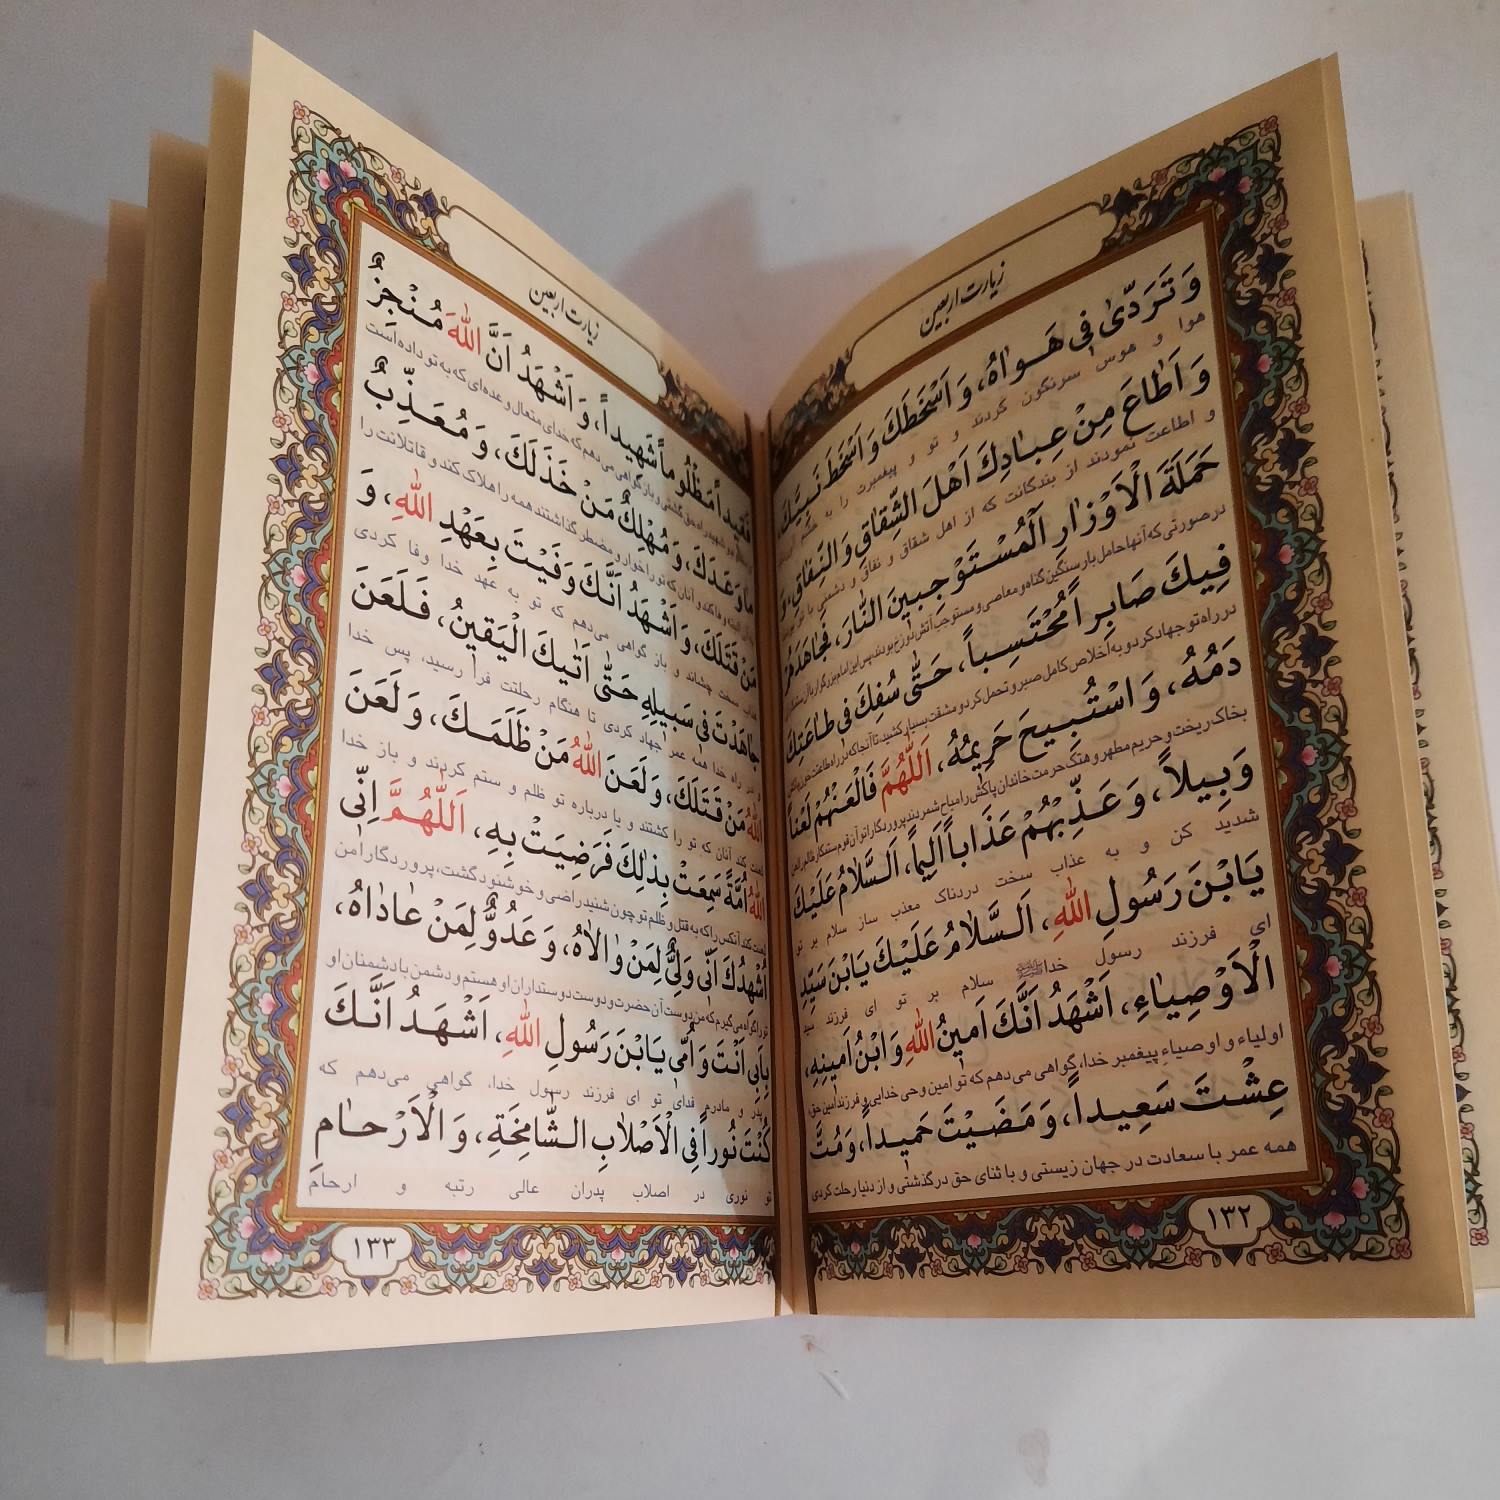 زیارت اربعین
وَ تَرَدّىٰ فى هَـوٰاهُ، وَ اَسْخَطَكَ وَ اَسْخَطَ نَـبِيَّكَ،
هوا و هوس سرنگون گردند و تو و پیغمبرت را به خشم
وَ اَطٰاعَ مِنْ عِبٰادِكَ اَهْلَ الشِّقٰاقِ وَ النِّفٰاقِ، وَ
و اطاعت نمودند از بندگانت که از اهل شقاق و نفاق و
حَمَلَةَ الْاَوْزٰارِ اَلْمُسْتَوْجِبينَ النّٰارَ، فَجٰاهَدَهُمْ
درصورتی که آنها حامل بار سنگین گناه و معاصی و مستوجب آتش دوزخ بودند پس این امام بزرگوار با آن
فِيكَ صَابِراً مُحْتَسِباً، حَتّٰى سُفِكَ فى طٰاعَتِكَ
در راه تو جهاد کرد و به اخلاص کامل صبر و تحمل کرد و مشقت بسیار کشید، تا آنجا که در راه طاعتت خون پاکش
دَمُهُ، وَ اسْتُبيحَ حَرِيمُهُ، اَللّٰهُمَّ فَالْعَنْهُمْ لَعْناً
بخاک ریخت و حریم مطهر و هتک حرمت خاندان پاکش را مباح شمردند پروردگارا تو آن قوم ستمکار ظالم را لعن
وَبيلاً، وَ عَذِّبْهُمْ عَذَاباً اَلِيماً، اَلسَّلاٰمُ عَلَيْكَ
شدید کن و به عذاب سخت دردناک معذب ساز سلام بر تو
يَابْنَ رَسُولِ اللّٰهِ، اَلسَّلاٰمُ عَلَيْكَ يَابْنَ سَيِّدِ
ای فرزند رسول خداﷺ سلام بر تو ای فرزند سید
الْاَوْصِيٰاءِ، اَشْهَدُ اَنَّكَ اَمينُ اللّٰهِ وَ ابْنُ اَمينِهِ،
اولیاء و اوصیاء پیغمبر خدا، گواهی می‌دهم که تو امین وحی خدایی و فرزند امین حق،
عِشْتَ سَعِيداً، وَ مَضَيْتَ حَميداً، وَ مُتَّ
همه عمر با سعادت در جهان زیستی و با ثنای حق درگذشتی و از دنیا رحلت کردی
۱۳۲
زیارت اربعین
فَقيداً مَظْلُوماً شَهيداً، وَ اَشْهَدُ اَنَّ اللّٰهَ مُنْجِزٌ
شهید راه حق گشتی و باز گواهی می‌دهم که خدای متعال وعده‌ای که به تو داده است
مٰا وَعَدَكَ، وَ مُهْلِكٌ مَنْ خَذَلَكَ، وَ مُعَذِّبٌ
البته وفا کند و آنان که تو را خوار و مضطر گذاشتند همه را هلاک کند و قاتلانت را
مَنْ قَتَلَكَ، وَ اَشْهَدُ اَنَّكَ وَفَيْتَ بِعَهْدِ اللّٰهِ، وَ
عذاب سخت چشاند و باز گواهی می‌دهم که تو به عهد خدا وفا کردی
جٰاهَدْتَ فى سَبيلِهِ حَتّٰى اَتٰيكَ الْيَقينُ، فَلَعَنَ
و در راه خدا همه عمر جهاد کردی تا هنگام رحلتت فرا رسید، پس خدا
اللّٰهُ مَنْ قَتَلَكَ، وَ لَعَنَ اللّٰهُ مَنْ ظَلَمَكَ، وَ لَعَنَ
لعنت کند آنان که تو را کشتند و یا درباره تو ظلم و ستم کردند و باز خدا
اللّٰهُ اُمَّةً سَمِعَتْ بِذٰلِكَ فَرَضِيَتْ بِهِ، اَللّٰهُمَّ اِنّى
لعنت کند آنکس را که به قتل و ظلم تو چون شنید راضی و خوشنود گشت، پروردگارا من
اُشْهِدُكَ اَنّى وَلِىٌّ لِمَنْ وٰالاٰهُ، وَ عَدُوٌّ لِمَنْ عٰادٰاهُ،
تو را گواه می‌گیرم که من دوست آن حضرت و دوست دوستداران او هستم و دشمن با دشمنان او
بِاَبى اَنْتَ وَ اُمّى يَابْنَ رَسُولِ اللّٰهِ، اَشْهَدُ اَنَّكَ
پدر و مادرم فدای تو ای فرزند رسول خدا، گواهی می‌دهم که
كُنْتَ نُوراً فِى الْاَصْلاٰبِ الشّٰامِخَةِ، وَ الْاَرْحٰامِ
تو نوری در اصلاب پدران عالی رتبه و ارحام
۱۳۳